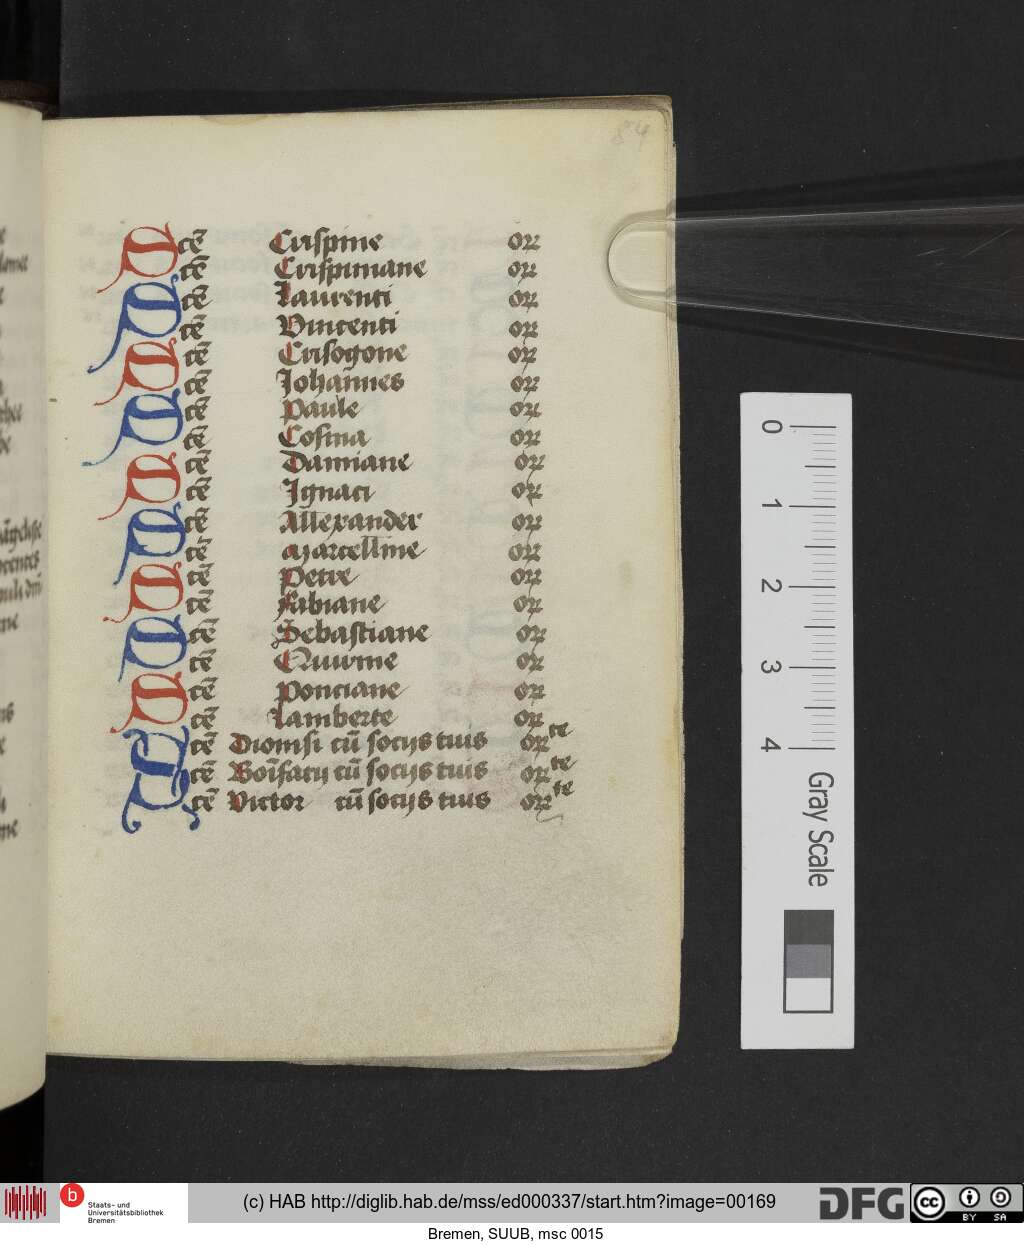 84
Scē Crispine or
Scē Crispiniane or
Scē Laurenti or
Scē Vincenti or
Scē Crisogone or
Scē Johannes or
Scē Paule or
Scē Cosma or
Scē Damiane or
Scē Ignaci or
Scē Allexander or
Scē Marcelline or
Scē Petre or
Scē Fabiane or
Scē Sebastiane or
Scē Quirine or
Scē Ponciane or
Scē Lamberte or
Scē Dionisi cū socijs tuis orte
Scē Bonifacij cū socijs tuis orte
Scē Victor cū socijs tuis orte
0 1 2 3 4 Gray Scale
b Staats- und Universitätsbibliothek Bremen
(c) HAB http://diglib.hab.de/mss/ed000337/start.htm?image=00169
DFG
cc BY SA
Bremen, SUUB, msc 0015